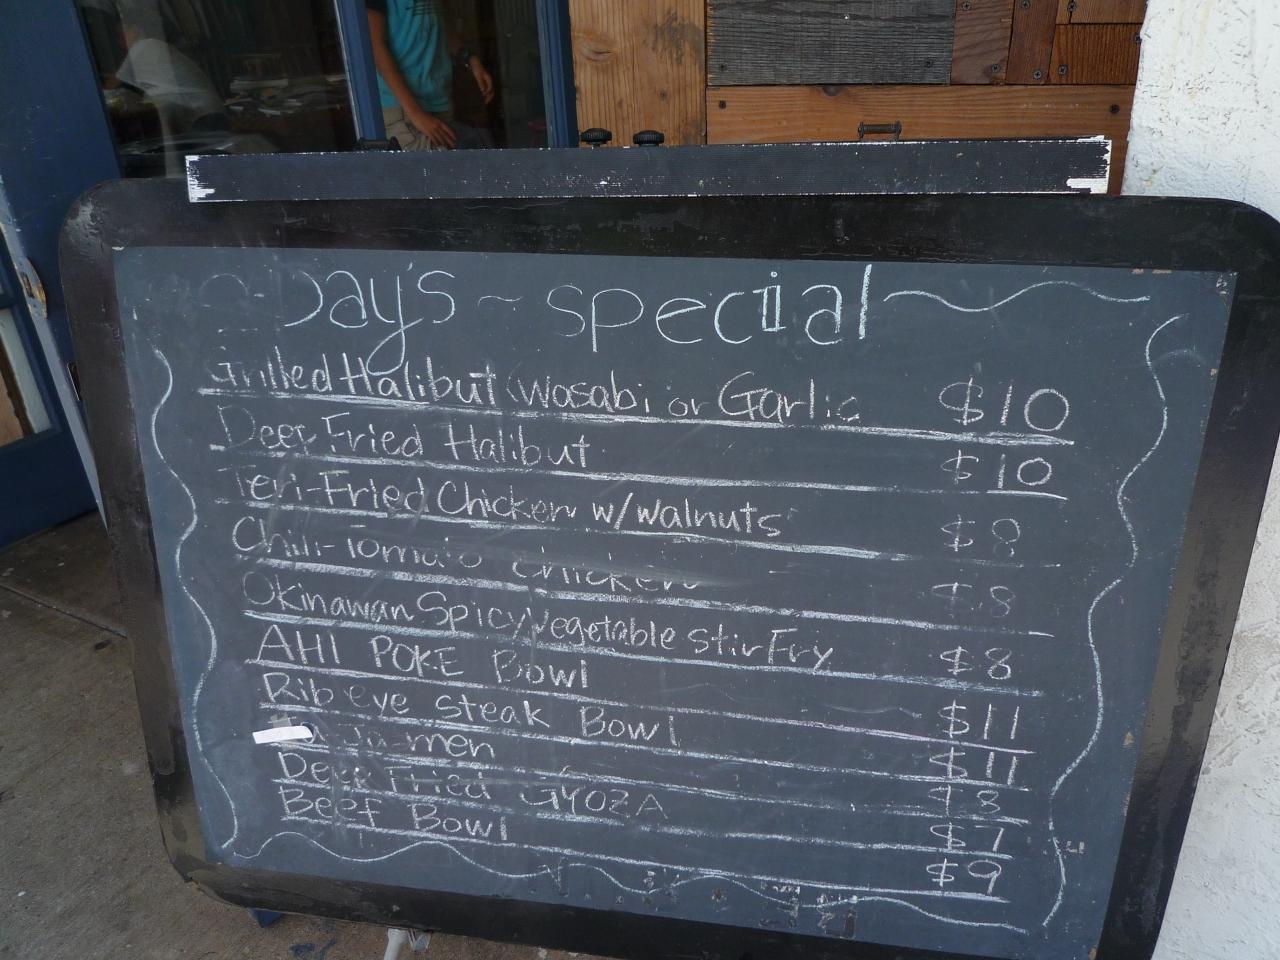 Day's ~ special
Grilled Halibut (Wasabi or Garlic $10
Deep Fried Halibut $10
Teri-Fried Chicken w/walnuts $8
Chili-Tomato Chicken $8
Okinawan Spicy Vegetable Stir Fry $8
AHI POKE Bowl $11
Rib eye Steak Bowl $11
men $8
Deep Fried GYOZA $7
Beef Bowl $9